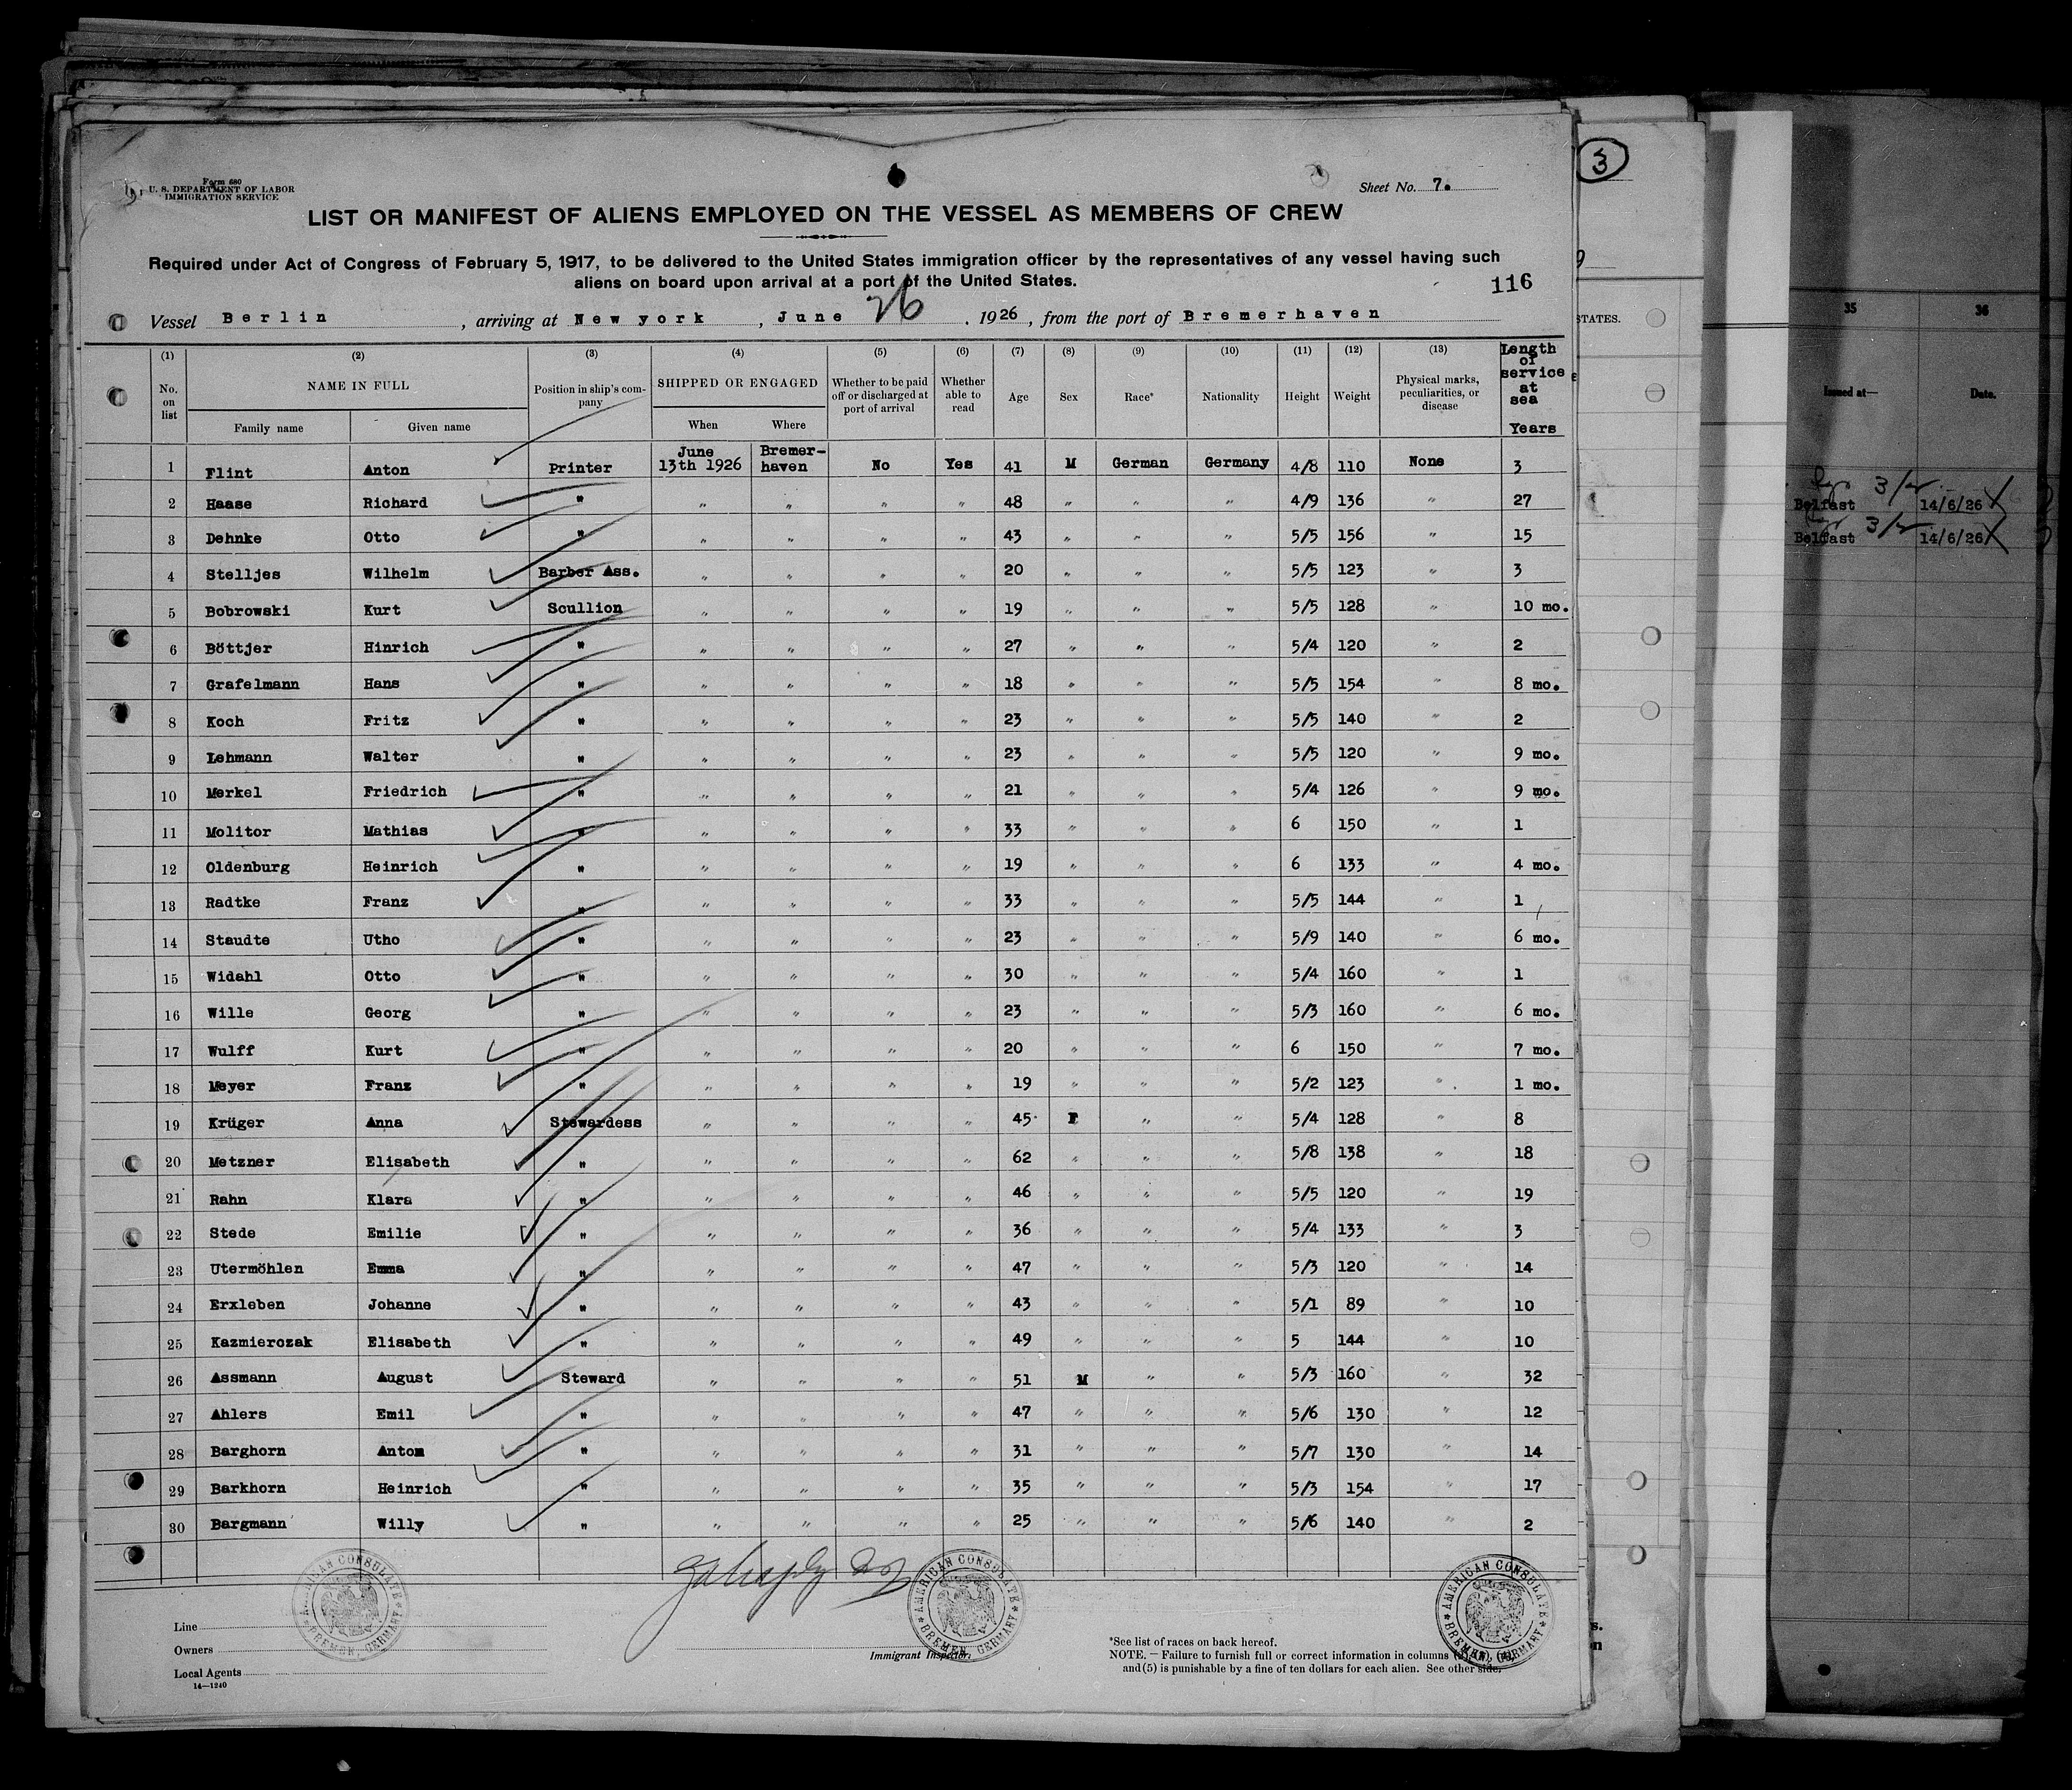 Form 680
U. S. DEPARTMENT OF LABOR
IMMIGRATION SERVICE
Sheet No. 7.
3
LIST OR MANIFEST OF ALIENS EMPLOYED ON THE VESSEL AS MEMBERS OF CREW
Required under Act of Congress of February 5, 1917, to be delivered to the United States immigration officer by the representatives of any vessel having such
aliens on board upon arrival at a port of the United States.
116
Vessel Berlin, arriving at New york, June 26, 1926, from the port of Bremerhaven
STATES.
35 36
Issued at— Date.
(1) (2) (3) (4) (5) (6) (7) (8) (9) (10) (11) (12) (13) Length of service at sea Years
No. on list NAME IN FULL Position in ship's company SHIPPED OR ENGAGED Whether to be paid off or discharged at port of arrival Whether able to read Age Sex Race* Nationality Height Weight Physical marks, peculiarities, or disease
Family name Given name When Where
1 Flint Anton Printer June 13th 1926 Bremer-haven No Yes 41 M German Germany 4/8 110 None 3
2 Haase Richard " " " " " 48 " " " 4/9 136 " 27
3 Dehnke Otto " " " " " 43 " " " 5/5 156 " 15
4 Stelljes Wilhelm Barber Ass. " " " " 20 " " " 5/5 123 " 3
5 Bobrowski Kurt Scullion " " " " 19 " " " 5/5 128 " 10 mo.
6 Böttjer Hinrich " " " " " 27 " " " 5/4 120 " 2
7 Grafelmann Hans " " " " " 18 " " " 5/5 154 " 8 mo.
8 Koch Fritz " " " " " 23 " " " 5/5 140 " 2
9 Lehmann Walter " " " " " 23 " " " 5/5 120 " 9 mo.
10 Merkel Friedrich " " " " " 21 " " " 5/4 126 " 9 mo.
11 Molitor Mathias " " " " " 33 " " " 6 150 " 1
12 Oldenburg Heinrich " " " " " 19 " " " 6 133 " 4 mo.
13 Radtke Franz " " " " " 33 " " " 5/5 144 " 1
14 Staudte Utho " " " " " 23 " " " 5/9 140 " 6 mo.
15 Widahl Otto " " " " " 30 " " " 5/4 160 " 1
16 Wille Georg " " " " " 23 " " " 5/3 160 " 6 mo.
17 Wulff Kurt " " " " " 20 " " " 6 150 " 7 mo.
18 Meyer Franz " " " " " 19 " " " 5/2 123 " 1 mo.
19 Krüger Anna Stewardess " " " " 45 F " " 5/4 128 " 8
20 Metzner Elisabeth " " " " " 62 " " " 5/8 138 " 18
21 Rahn Klara " " " " " 46 " " " 5/5 120 " 19
22 Stede Emilie " " " " " 36 " " " 5/4 133 " 3
23 Utermöhlen Emma " " " " " 47 " " " 5/3 120 " 14
24 Erxleben Johanne " " " " " 43 " " " 5/1 89 " 10
25 Kazmierczak Elisabeth " " " " " 49 " " " 5 144 " 10
26 Assmann August Steward " " " " 51 M " " 5/3 160 " 32
27 Ahlers Emil " " " " " 47 " " " 5/6 130 " 12
28 Barghorn Anton " " " " " 31 " " " 5/7 130 " 14
29 Barkhorn Heinrich " " " " " 35 " " " 5/3 154 " 17
30 Bargmann Willy " " " " " 25 " " " 5/6 140 " 2
Belfast 3/ 14/6/26
Belfast 3/ 14/6/26
AMERICAN CONSULATE BREMEN, GERMANY
AMERICAN CONSULATE BREMEN, GERMANY
AMERICAN CONSULATE BREMEN, GERMANY
Line
Owners
Local Agents
14—1240
Immigrant Inspector.
*See list of races on back hereof.
NOTE. — Failure to furnish full or correct information in columns
and (5) is punishable by a fine of ten dollars for each alien. See other side.